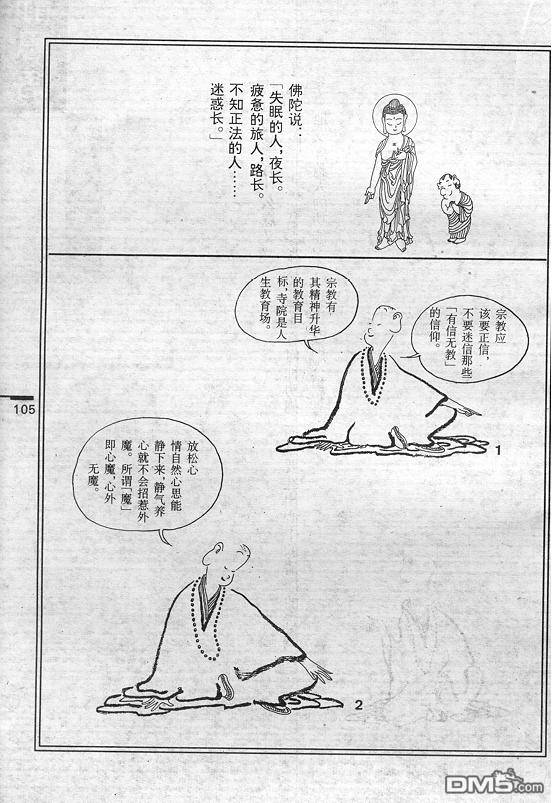 佛陀说：
「失眠的人，夜长。
疲惫的旅人，路长。
不知正法的人……
迷惑长。」
宗教应
该要正信，
不要迷信那些
「有信无教」
的信仰。
宗教有
其精神升华
的教育目
标，寺院是人
生教育场。
1
105
放松心
情自然心思能
静下来，静气养
心就不会招惹外
魔。所谓「魔」
即心魔，心外
无魔。
2
DM5.com